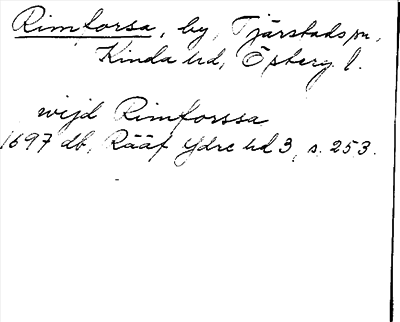 Rimforsa, by, Tjärstads sn,
Kinda hd, Östberg. l.
wijd Rimforssa
1697 db, Rääf Ydre hd 3, s. 253.